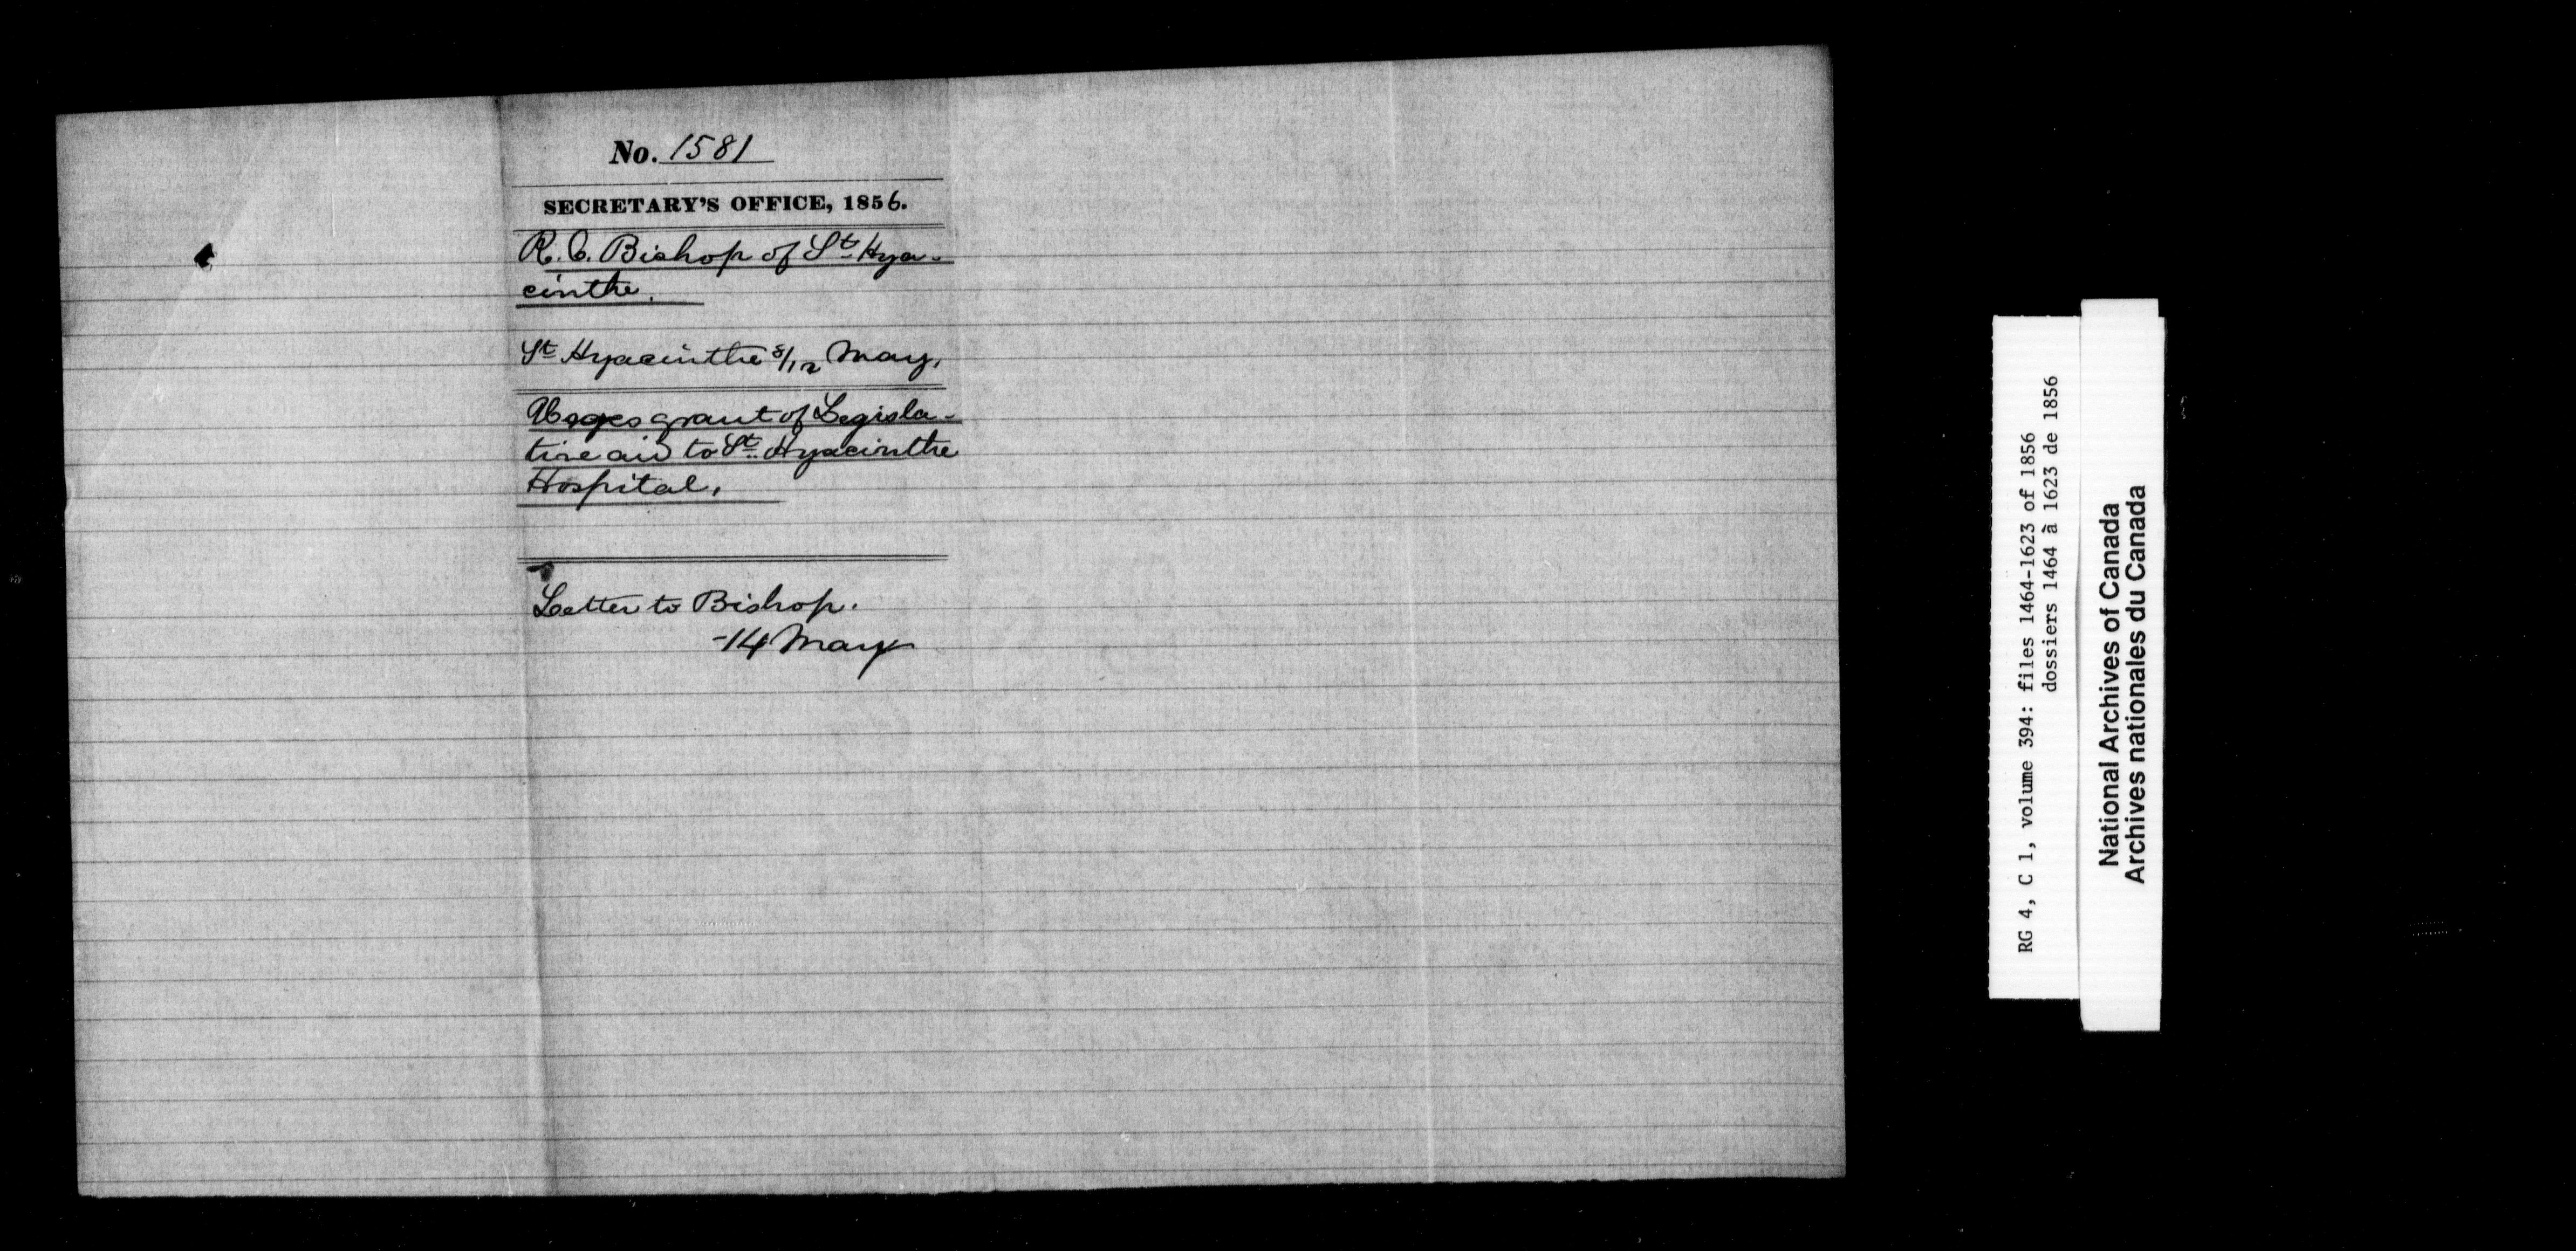 No. 1581
SECRETARY'S OFFICE, 1856.
R. C. Bishop of St Hya-
cinthe.
St Hyacinthe 8/12 May,
Urges grant of Legisla-
tive aid to St Hyacinthe
Hospital,
Letter to Bishop.
-14 May
RG 4, C 1, volume 394: files 1464-1623 of 1856
dossiers 1464 à 1623 de 1856
National Archives of Canada
Archives nationales du Canada